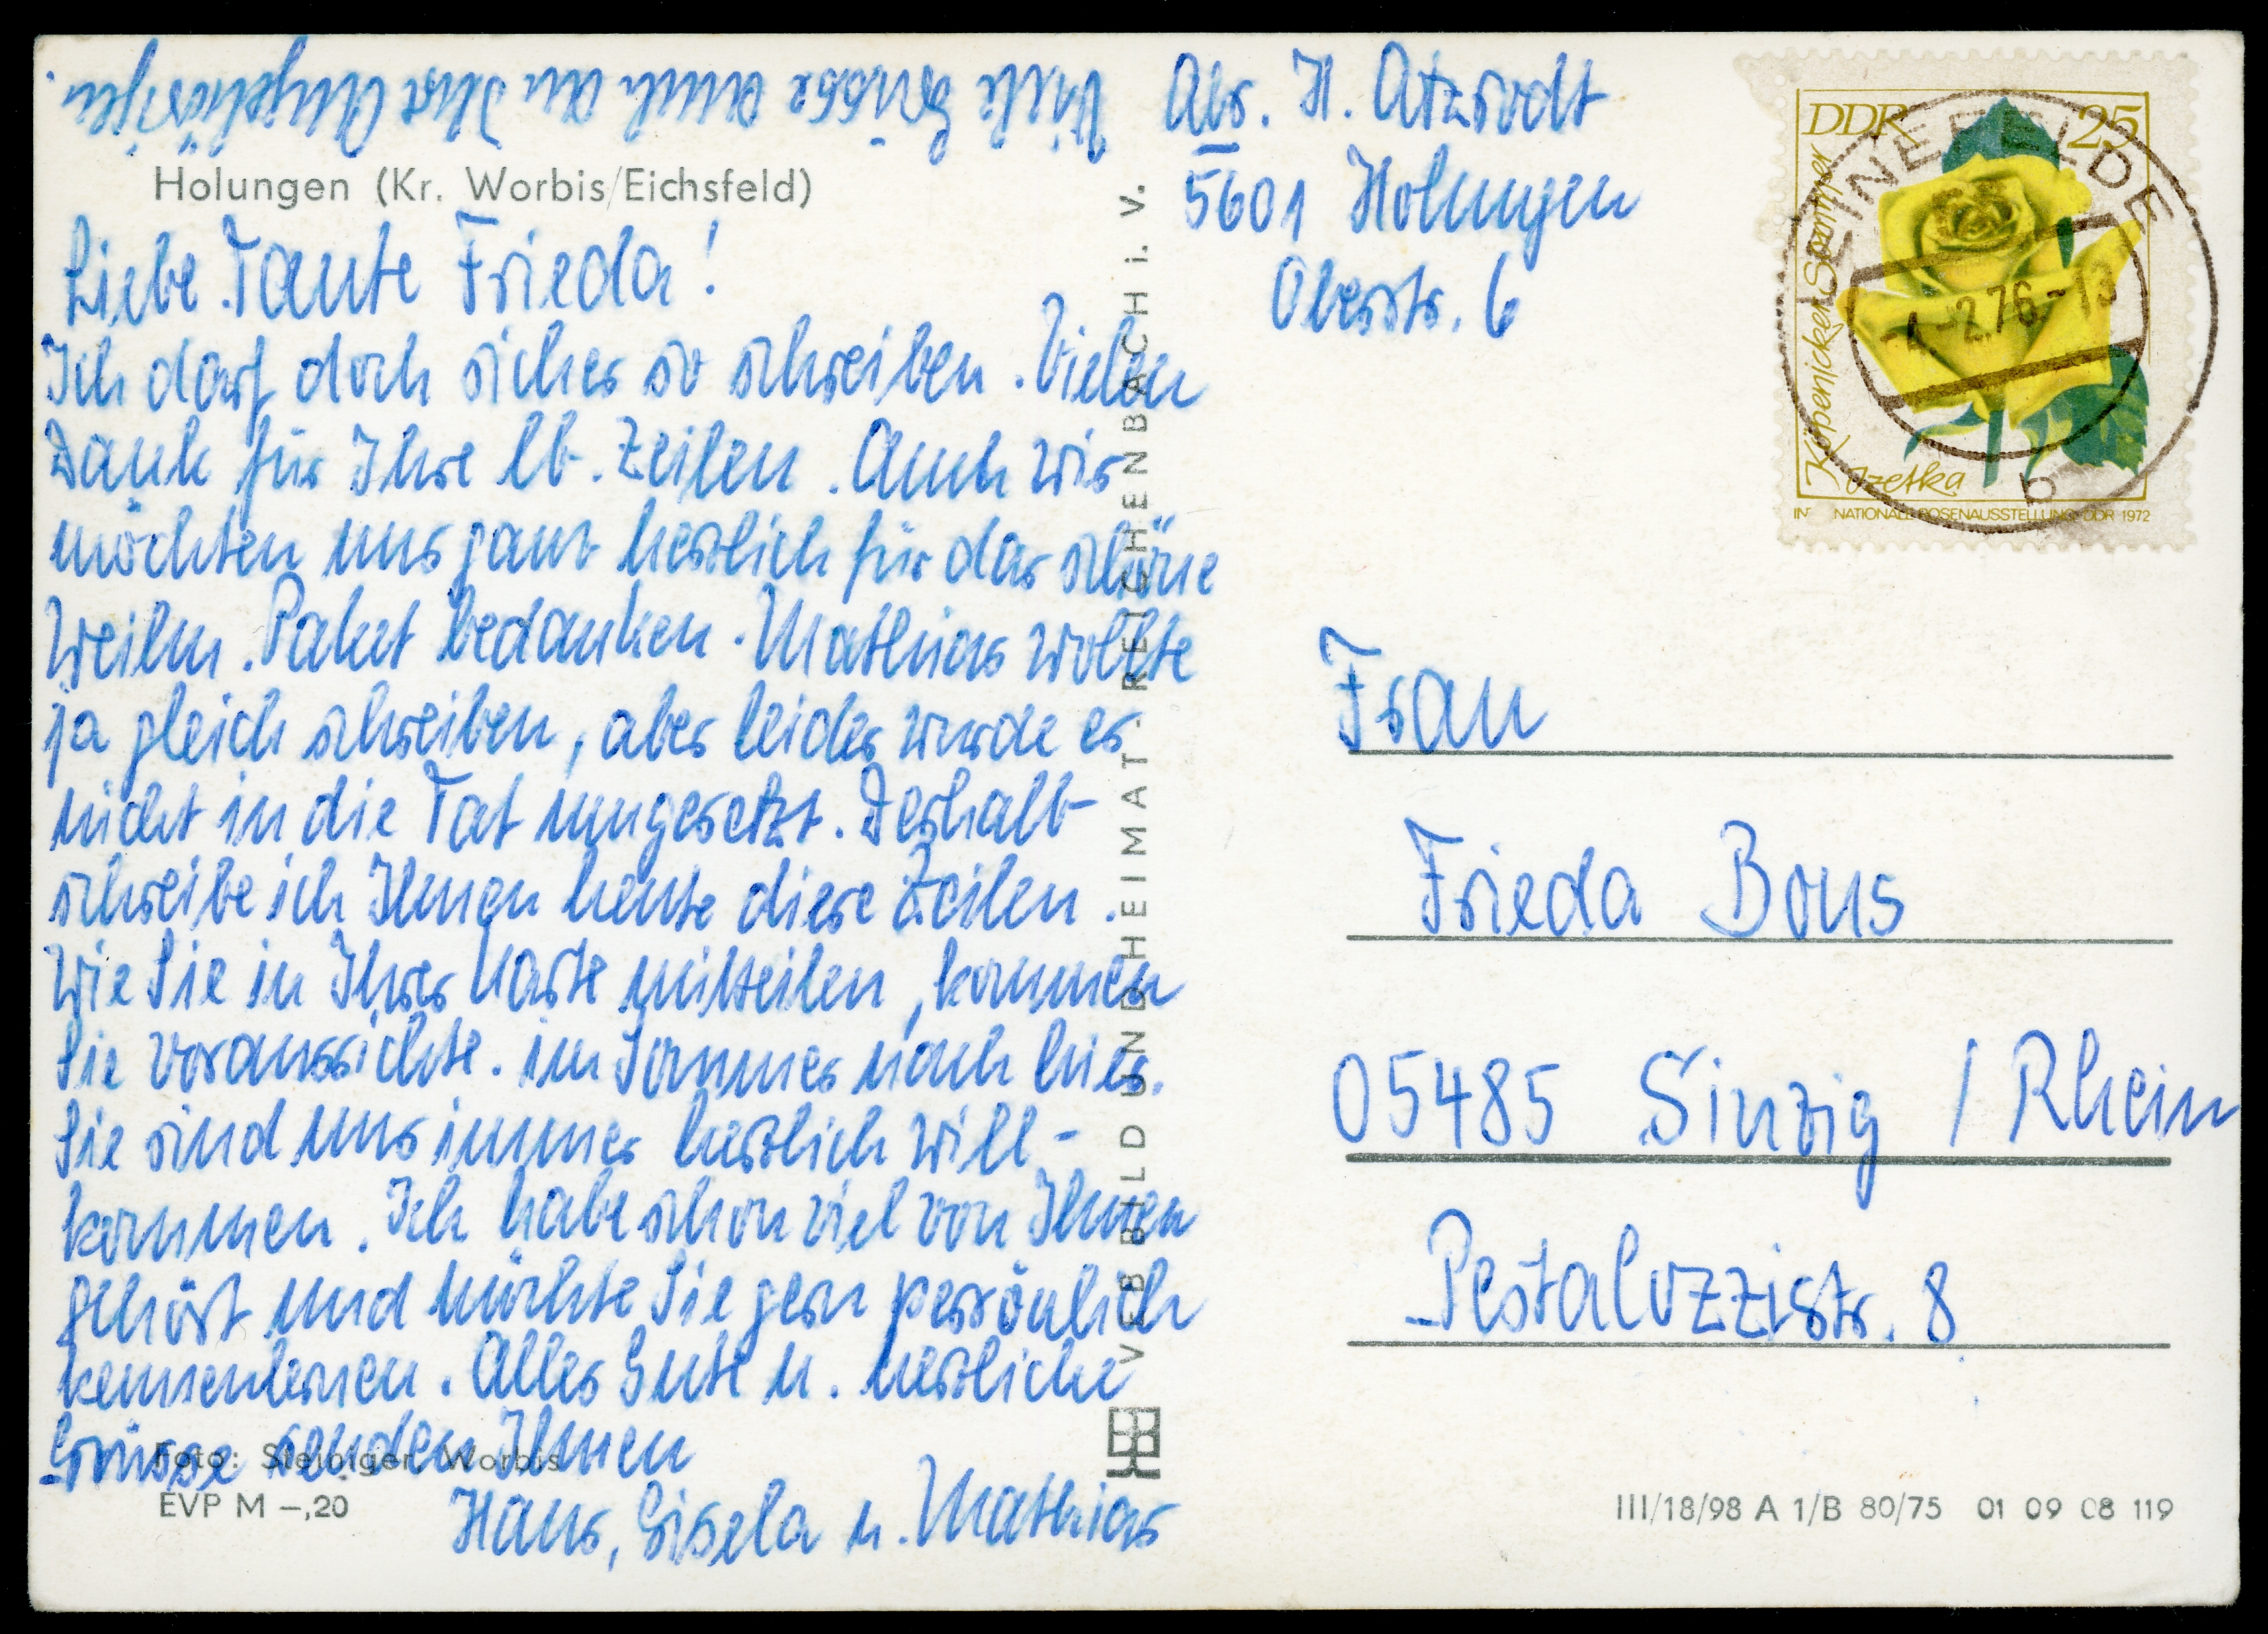 Viele Grüsse auch an Ihre Angehörigen.
Holungen (Kr. Worbis/Eichsfeld)
Liebe Tante Frieda!
Ich darf doch sicher so schreiben. Vielen
Dank für Ihre lb. Zeilen. Auch wir
möchten uns ganz herzlich für das schöne
Weihn. Paket bedanken. Mathias wollte
ja gleich schreiben, aber leider wurde es
nicht in die Tat umgesetzt. Deshalb
schreibe ich Ihnen heute diese Zeilen.
Wie Sie in Ihrer Karte mitteilen, kommen
Sie voraussichte. im Sommer nach hier.
Sie sind uns immer herzlich will-
kommen. Ich habe schon viel von Ihnen
gehört und möchte Sie gern persönlich
kennenlernen. Alles Gute u. herzliche
Grüsse senden Ihnen
Hans, Gisela u. Mathias
Foto: Steiniger, Worbis
EVP M –,20
VEB BILD UND HEIMAT REICHENBACH i. V.
Abs. H. Atzrodt
5601 Holungen
Oberstr. 6
DDR 25
Köpenicker Sommer
Izetka
INTERNATIONALE ROSENAUSSTELLUNG DDR 1972
LEINEFELDE
-4.-2.76-18
b
Frau
Frieda Bous
05485 Sinzig / Rhein
Pestalozzistr. 8
III/18/98 A 1/B 80/75 01 09 08 119